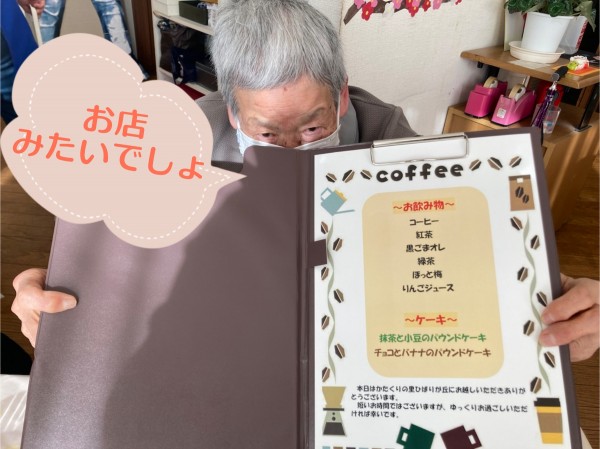 お店
みたいでしょ
coffee
～お飲み物～
コーヒー
紅茶
黒ごまオレ
緑茶
ほっと梅
りんごジュース
～ケーキ～
抹茶と小豆のパウンドケーキ
チョコとバナナのパウンドケーキ
本日はかたくりの里ひばりが丘にお越しいただきありが
とうございます。
短いお時間ではございますが、ゆっくりお過ごしいただ
ければ幸いです。